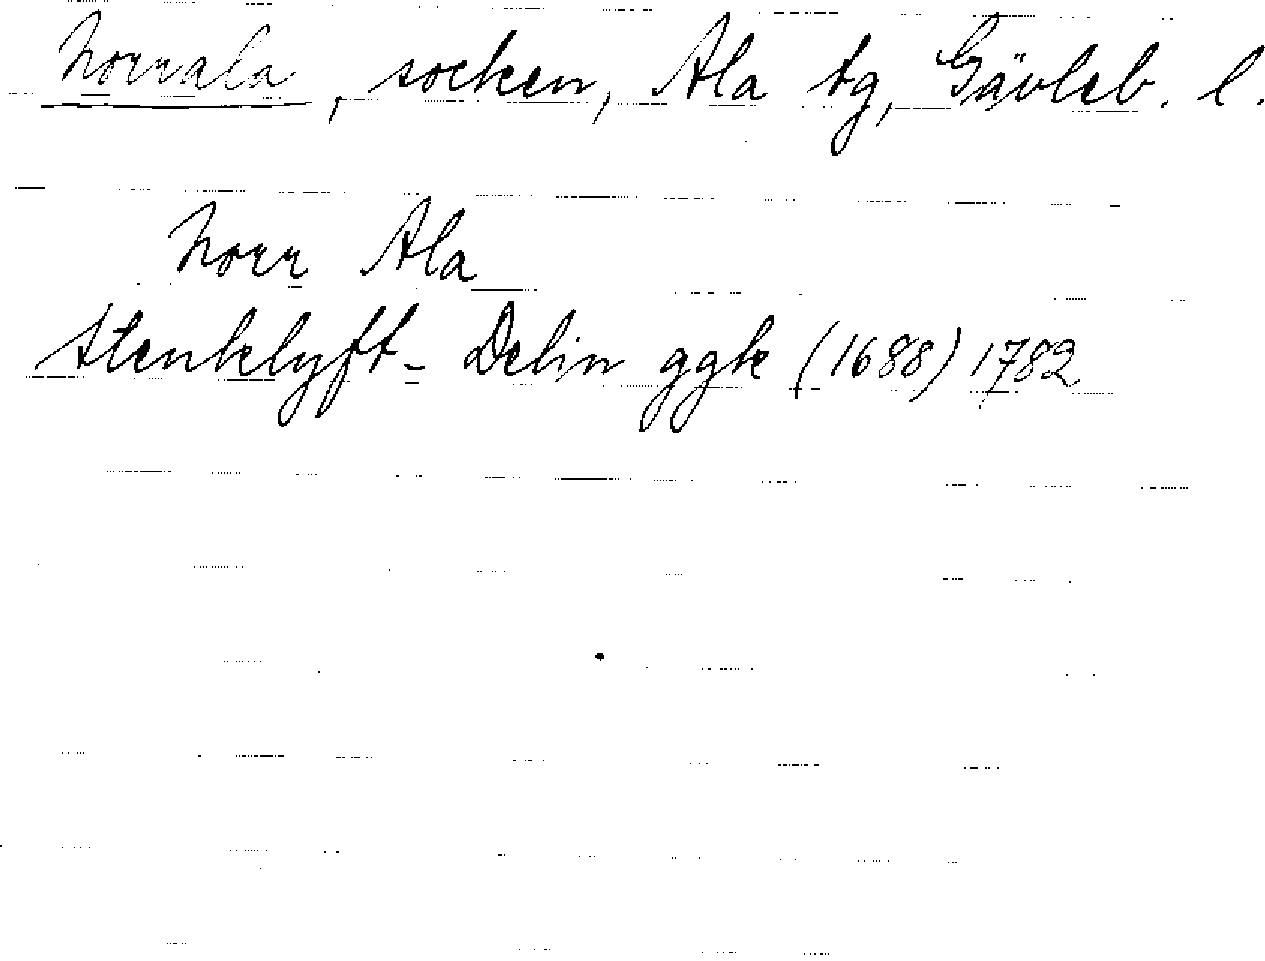 Norrala, socken, Ala tg, Gävleb. l.
Norr Ala
Stenklyft- Delin ggk (1688) 1782